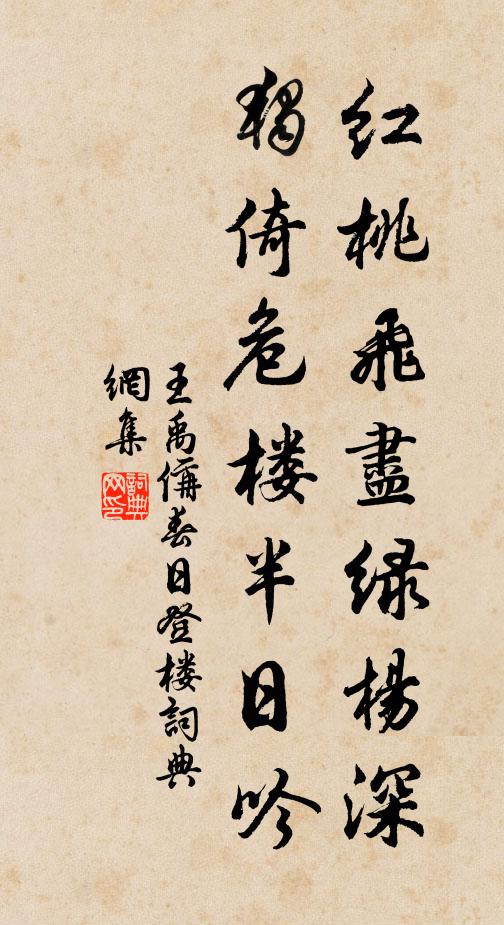 红桃飛盡緑楊深
独倚危楼半日吟
王禹偁春日登楼詞典
網集
詞典
网印